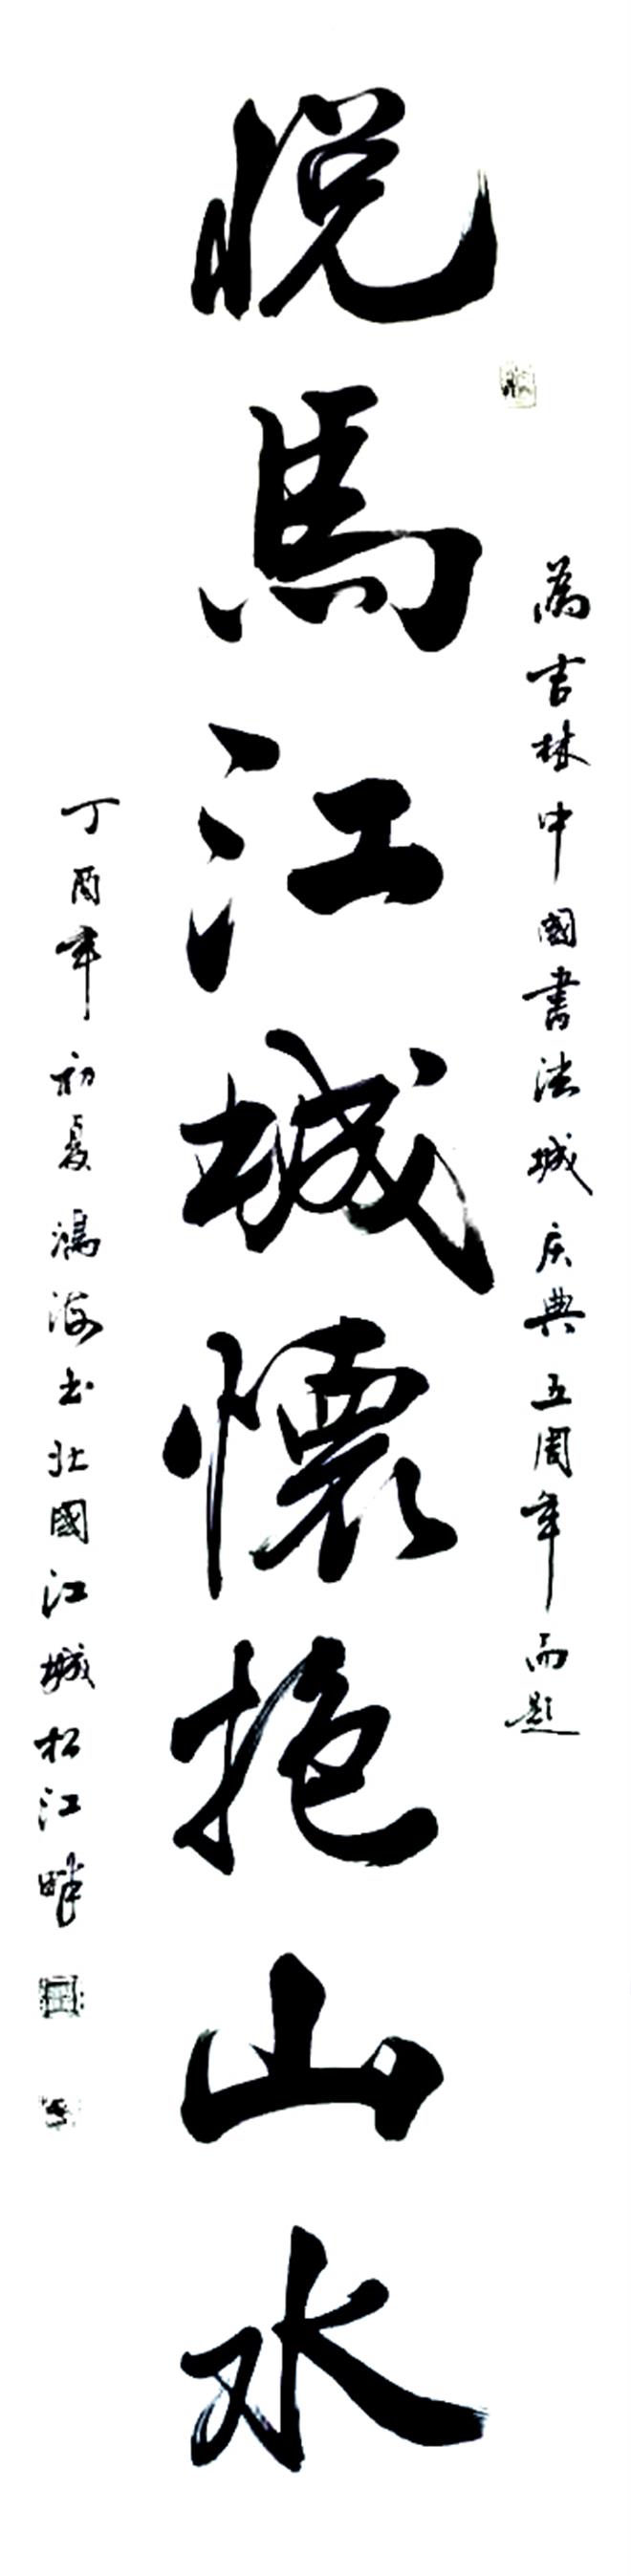 為吉林中國書法城庆典五周年而题
悦馬江城懷抱山水
丁酉年初夏鴻海书北國江城松江畔